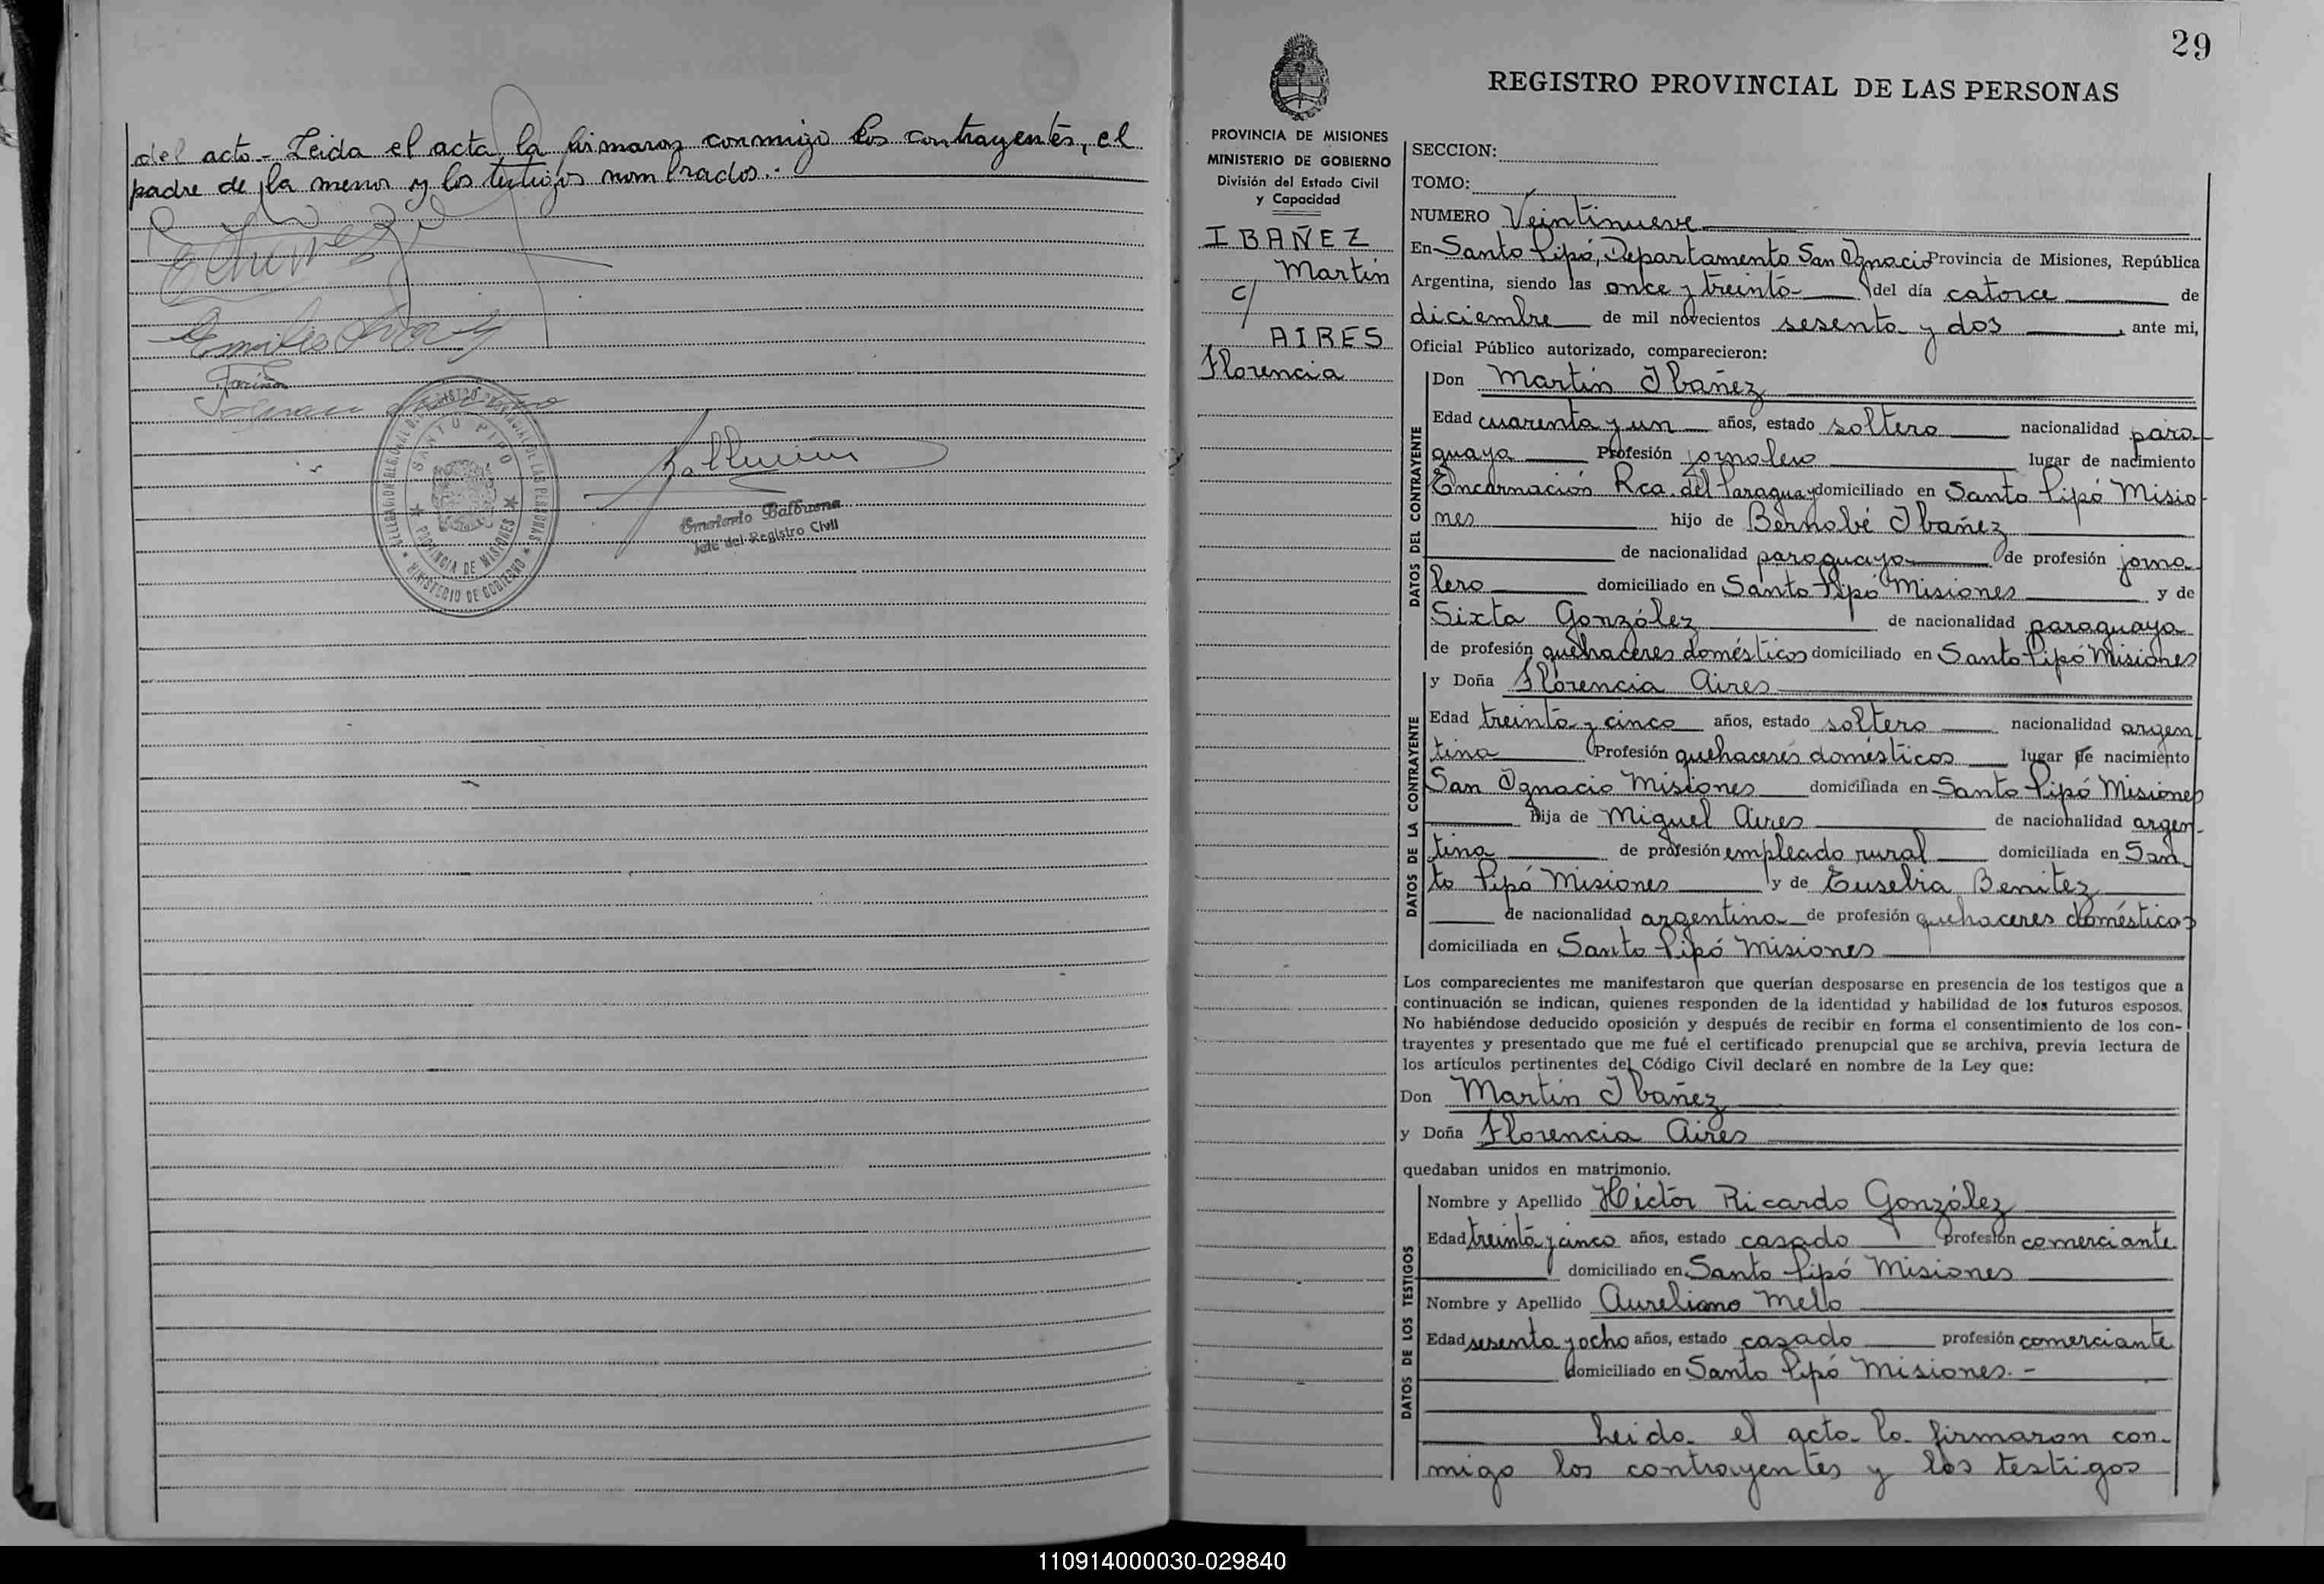 del acto - Leida el acta la firmaron conmigo los contrayentes, el
padre de la menor y los testigos nombrados.-
Emilio
SANTO PIPO
PROVINCIA DE MISIONES
MINISTERIO DE GOBIERNO
Emeterio Balbuena
Jefe del Registro Civil
29
REGISTRO PROVINCIAL DE LAS PERSONAS
PROVINCIA DE MISIONES
MINISTERIO DE GOBIERNO
División del Estado Civil
y Capacidad
IBAÑEZ
Martín
c/
AIRES
Florencia
SECCION:
TOMO:
NUMERO Veintinueve
En Santo Pipó, Departamento San Ignacio Provincia de Misiones, República
Argentina, siendo las once y treinta del día catorce de
diciembre de mil novecientos sesenta y dos, ante mi,
Oficial Público autorizado, comparecieron:
DATOS DEL CONTRAYENTE
Don Martín Ibañez
Edad cuarenta y un años, estado soltero nacionalidad para-
guaya Profesión jornalero lugar de nacimiento
Encarnación Rca. del Paraguay domiciliado en Santo Pipó Misio-
nes hijo de Bernabé Ibañez
de nacionalidad paraguaya de profesión jorna-
lero domiciliado en Santo Pipó Misiones y de
Sixta González de nacionalidad paraguaya
de profesión quehaceres domésticos domiciliado en Santo Pipó Misiones
DATOS DE LA CONTRAYENTE
y Doña Florencia Aires
Edad treinta y cinco años, estado soltera nacionalidad argen-
tina Profesión quehaceres domésticos lugar de nacimiento
San Ignacio Misiones domiciliada en Santo Pipó Misiones
Hija de Miguel Aires de nacionalidad argen-
tina de profesión empleado rural domiciliada en San-
to Pipó Misiones y de Eusebia Benitez
de nacionalidad argentina de profesión quehaceres domésticos
domiciliada en Santo Pipó Misiones
Los comparecientes me manifestaron que querían desposarse en presencia de los testigos que a
continuación se indican, quienes responden de la identidad y habilidad de los futuros esposos.
No habiéndose deducido oposición y después de recibir en forma el consentimiento de los con-
trayentes y presentado que me fué el certificado prenupcial que se archiva, previa lectura de
los artículos pertinentes del Código Civil declaré en nombre de la Ley que:
Don Martín Ibañez
y Doña Florencia Aires
quedaban unidos en matrimonio.
DATOS DE LOS TESTIGOS
Nombre y Apellido Héctor Ricardo González
Edad treinta y cinco años, estado casado profesión comerciante
domiciliado en Santo Pipó Misiones
Nombre y Apellido Aureliano Melo
Edad sesenta y ocho años, estado casado profesión comerciante
domiciliado en Santo Pipó Misiones.-
Leida el acta la firmaron con-
migo los contrayentes y los testigos
110914000030-029840